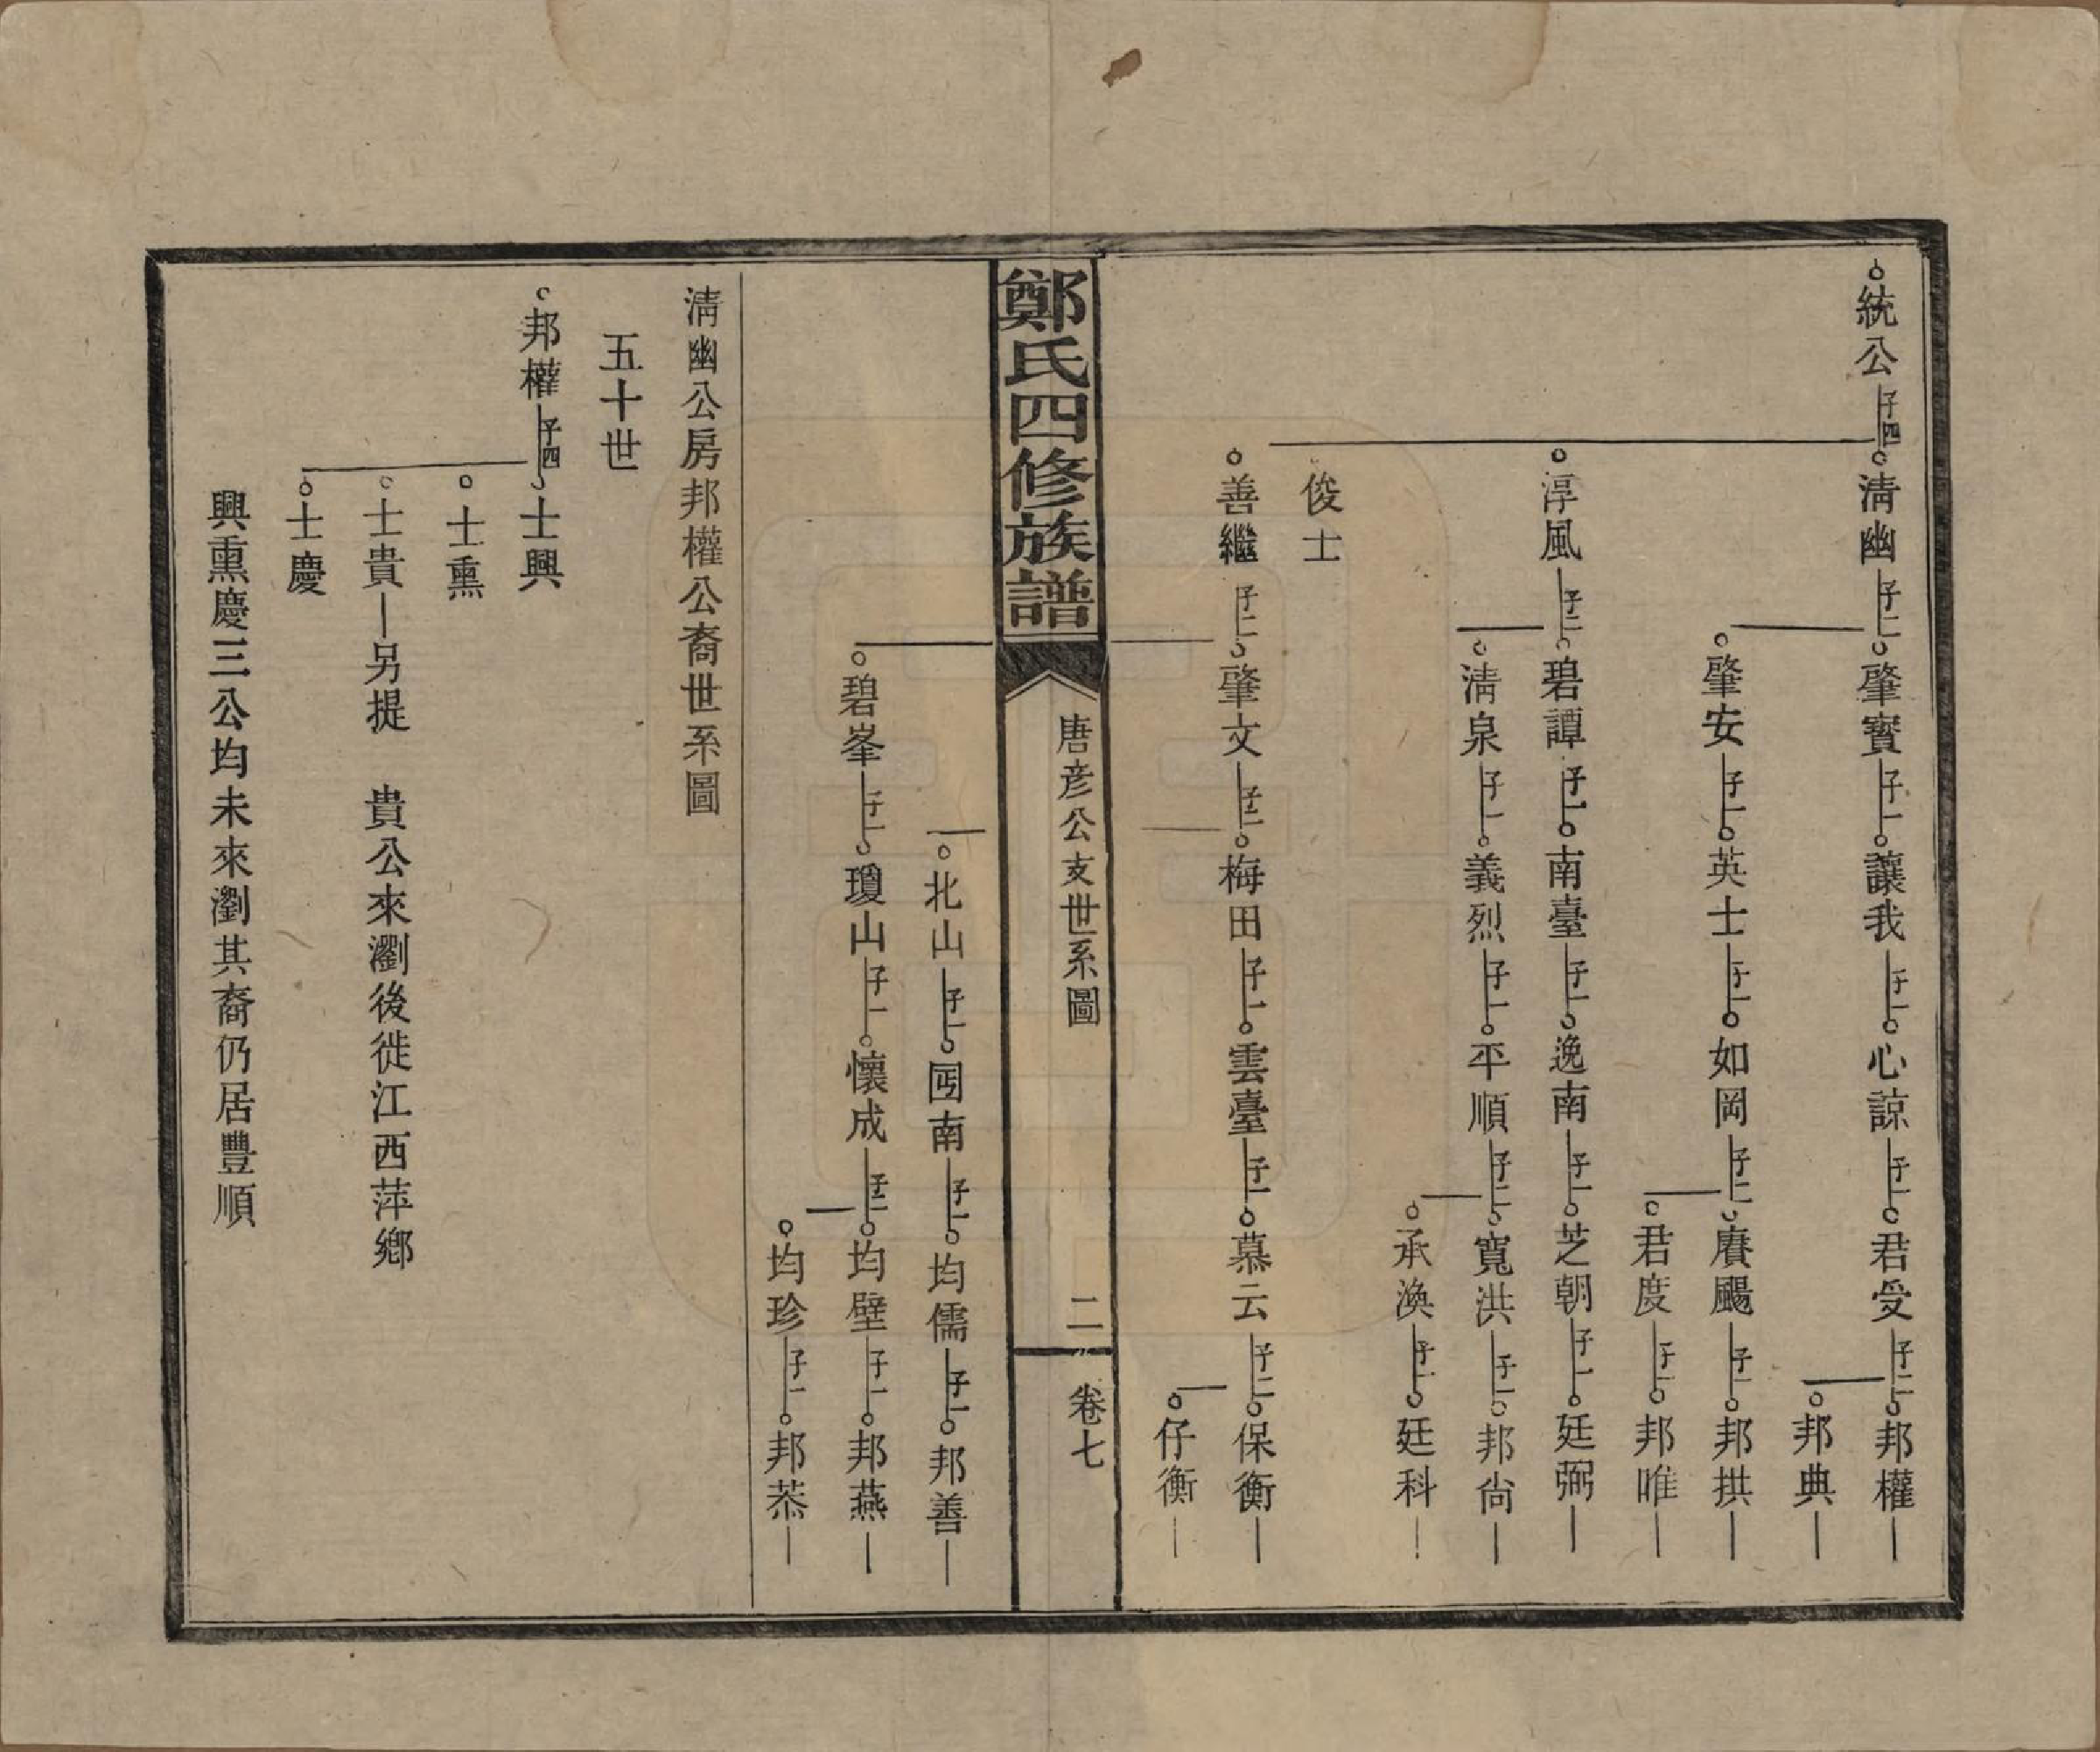 統公子四清幽子二肇實子一讓我子一心諒子一君受子二邦權
邦典
肇安子一英士子一如岡子二賡颺子一邦拱
君度子一邦唯
淳風子二碧譚子一南臺子一逸南子一芝朝子一廷弼
清泉子一義烈子一平順子二寬洪子一邦尙
承渙子一廷科
俊士
善繼子二肇文子二梅田子一雲臺子一慕云子二保衡
仔衡
鄭氏四修族譜
唐彥公支世系圖
二
卷七
北山子一囩南子一均儒子一邦善
碧峯子一瓊山子一懷成子二均壁子一邦燕
均珍子一邦恭
清幽公房邦權公裔世系圖
五十世
邦權子四士興
士熏
士貴另提 貴公來瀏後徙江西萍鄉
士慶
興熏慶三公均未來瀏其裔仍居豐順